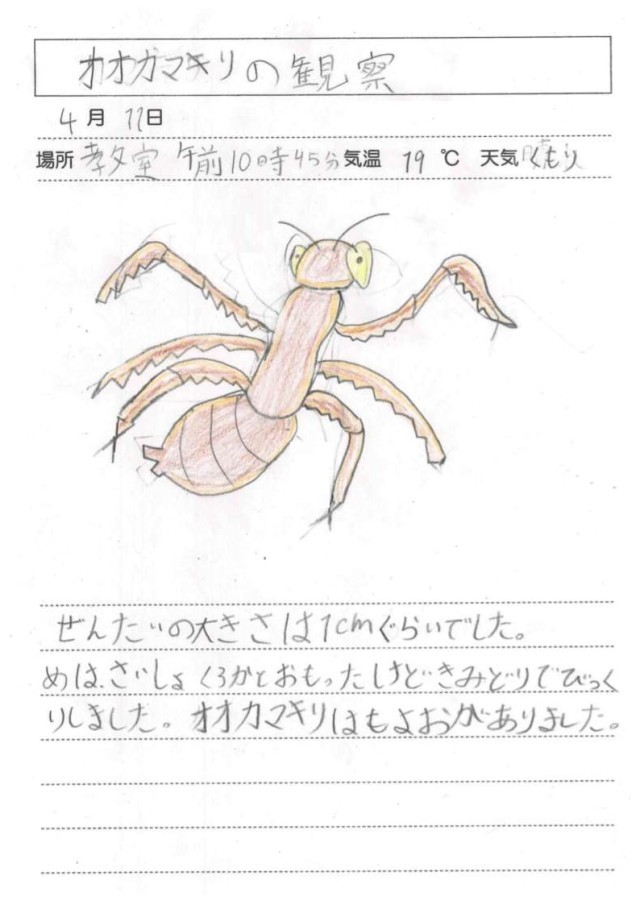 オオカマキリの観察
4月11日
場所 教室 午前10時45分 気温 19℃ 天気 くもり
ぜんたいの大きさは1cmぐらいでした。
めは、さいしょくろかとおもったけどきみどりでびっく
りしました。オオカマキリはもよおがありました。